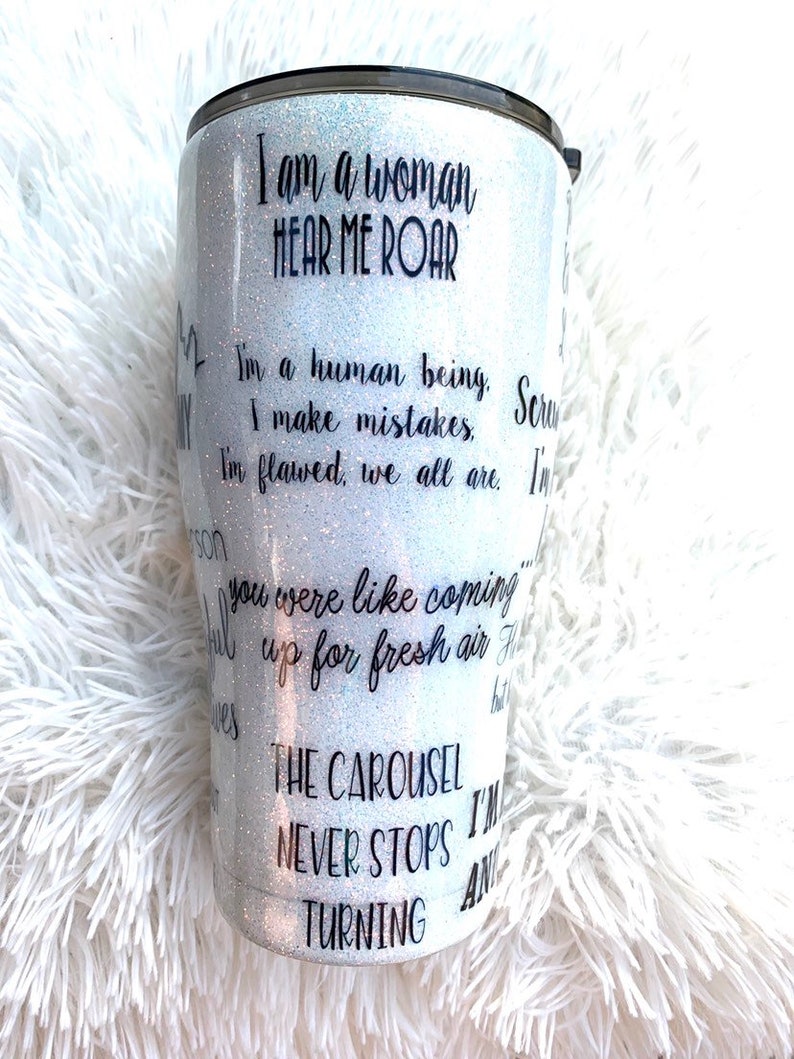 I am a woman
HEAR ME ROAR
I'm a human being,
I make mistakes,
I'm flawed, we all are.
you were like coming
up for fresh air
THE CAROUSEL
NEVER STOPS
TURNING
Screw
I'm
but
I'M